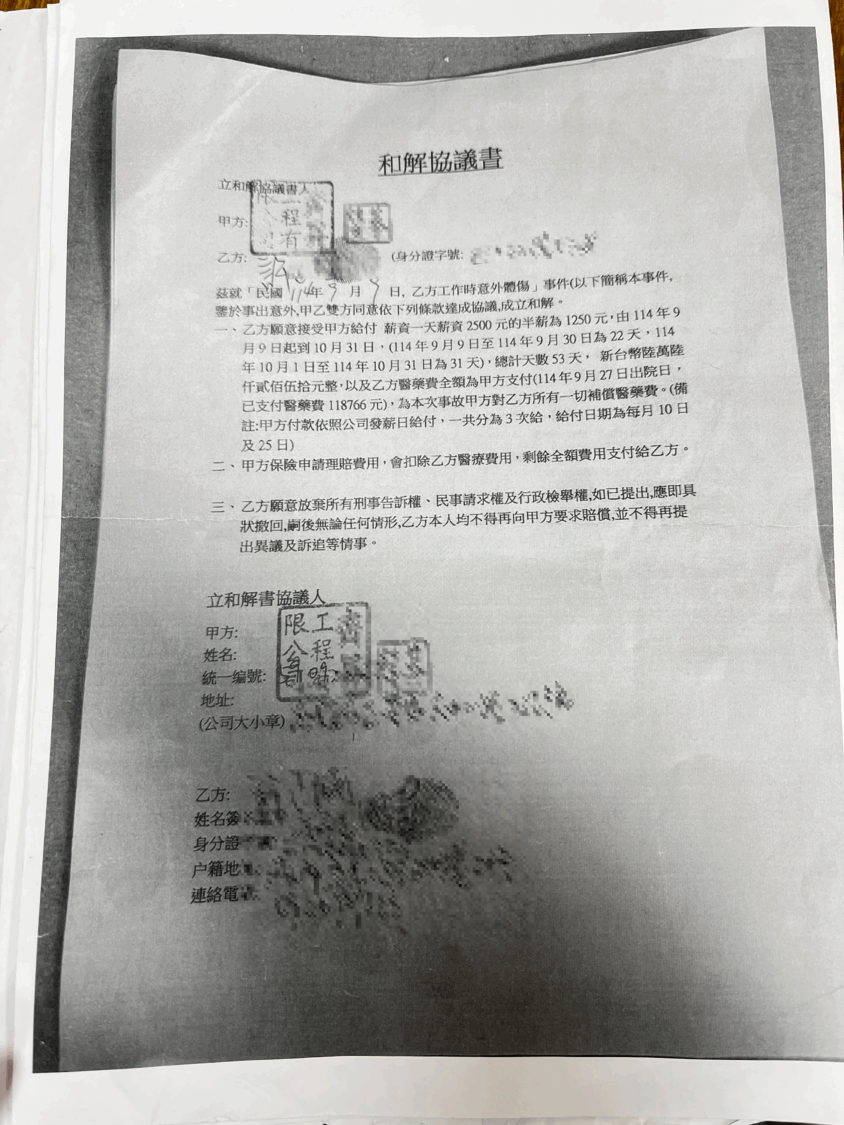 和解協議書
立和解協議書人
限工
程
有
甲方:
乙方: 許 (身分證字號:
茲就「民國 114年 9 月 9 日, 乙方工作時意外體傷」事件(以下簡稱本事件,
鑒於事出意外,甲乙雙方同意依下列條款達成協議,成立和解。
一、乙方願意接受甲方給付 薪資一天薪資 2500 元的半薪為 1250 元,由 114 年 9
月 9 日起到 10 月 31 日,(114 年 9 月 9 日至 114 年 9 月 30 日為 22 天,114
年 10 月 1 日至 114 年 10 月 31 日為 31 天),總計天數 53 天, 新台幣陸萬陸
仟貳佰伍拾元整,以及乙方醫藥費全額為甲方支付(114 年 9 月 27 日出院日,
已支付醫藥費 118766 元),為本次事故甲方對乙方所有一切補償醫藥費。(備
註:甲方付款依照公司發薪日給付,一共分為 3 次給,給付日期為每月 10 日
及 25 日)
二、甲方保險申請理賠費用,會扣除乙方醫療費用,剩餘全額費用支付給乙方。
三、乙方願意放棄所有刑事告訴權、民事請求權及行政檢舉權,如已提出,應即具
狀撤回,嗣後無論任何情形,乙方本人均不得再向甲方要求賠償,並不得再提
出異議及訴追等情事。
立和解書協議人
限工
公程
司有
甲方:
姓名:
統一編號:
地址:
(公司大小章)
乙方:
姓名簽
身分證
戶籍地
連絡電